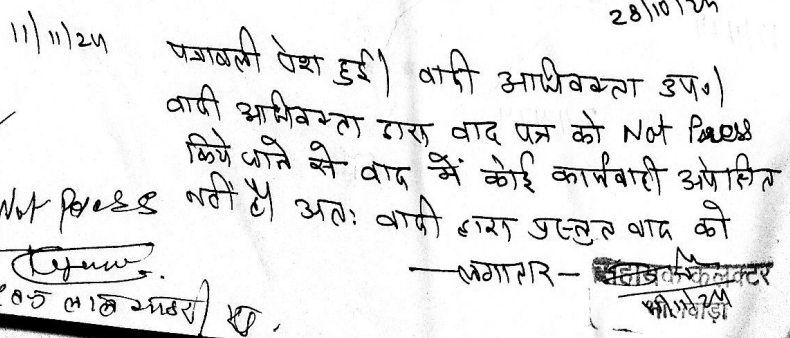 28/10/24
11/11/24
पत्रावली पेश हुई। वादी अधिवक्ता उप०।
वादी अधिवक्ता द्वारा वाद पत्र को Not Press
किये जाने से वाद में कोई कार्यवाही अपेक्षित
नहीं है। अतः वादी द्वारा प्रस्तुत वाद को
—लगातार—
Not Press
सहायक कलेक्टर
भीलवाड़ा